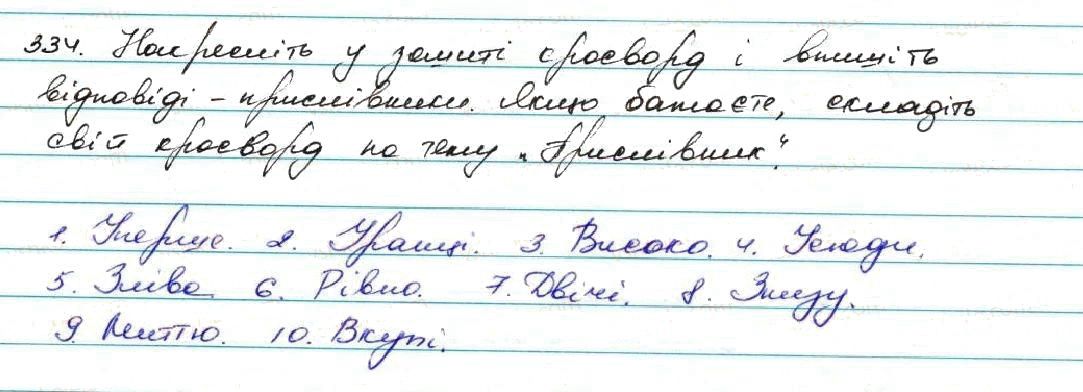 334. Накресліть у зошиті кросворд і впишіть
відповіді - прислівники. Якщо бажаєте, складіть
свій кросворд на тему „Прислівник".
1. Уперше. 2. Уранці. 3. Високо. 4. Усюди.
5. Зліва 6. Рівно. 7. Двічі. 8. Знизу.
9. Миттю. 10. Вкупі.